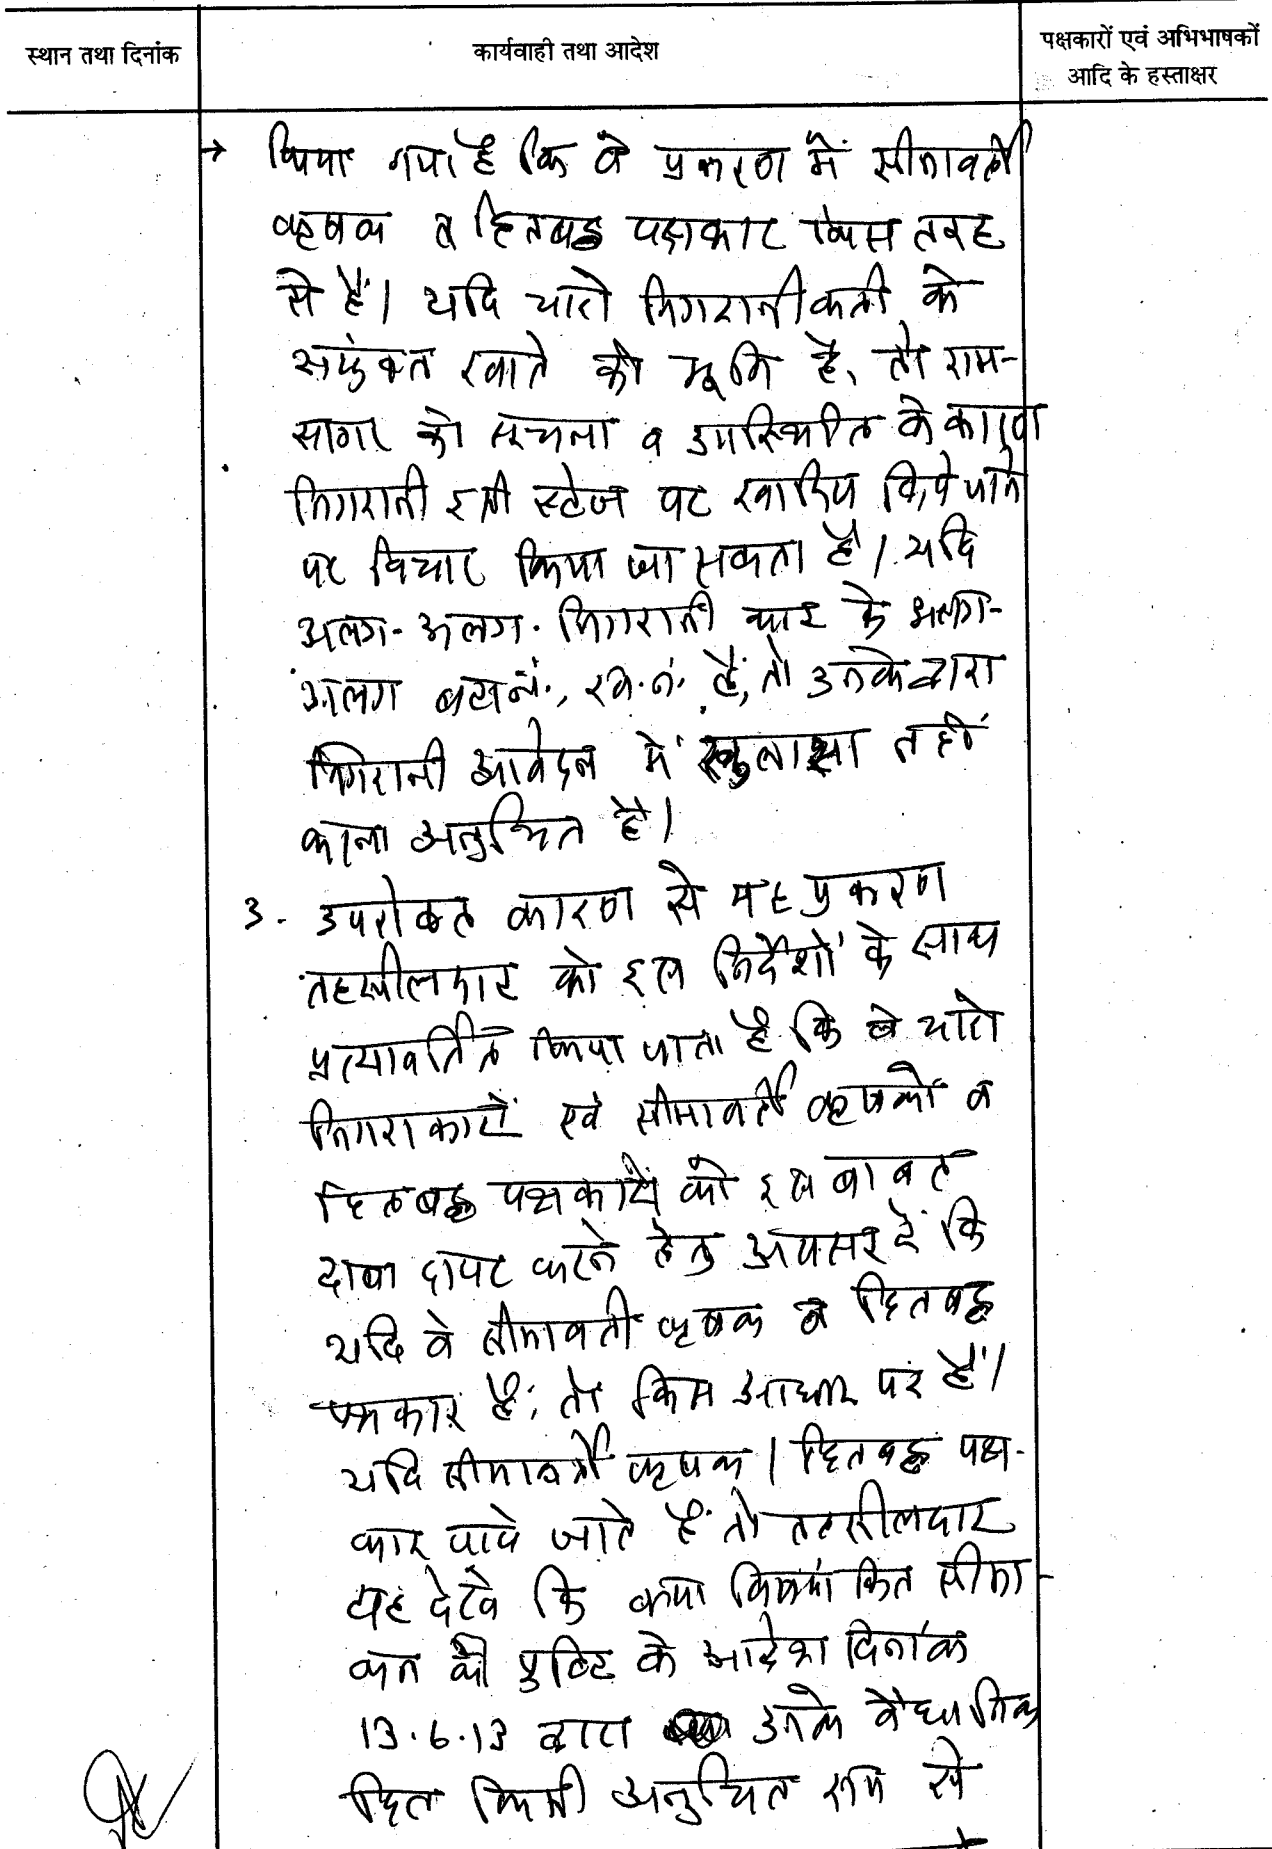 स्थान तथा दिनांक
कार्यवाही तथा आदेश
पक्षकारों एवं अभिभाषकों
आदि के हस्ताक्षर
→ किया गया है कि वे प्रकरण में सीमावर्ती
कृषक व हितबद्ध पक्षकार किस तरह
से हैं। यदि चारो निगरानीकर्ता के
संयुक्त खाते की भूमि है, तो राम-
सागर को सूचना व उपस्थिति के कारण
निगरानी इसी स्टेज पर खारिज किये जाने
पर विचार किया जा सकता है। यदि
अलग-अलग निगरानी कार के अलग-
अलग बटानं., ख.नं. हैं, तो उनके द्वारा
निगरानी आवेदन में खुलासा नहीं
करना अनुचित है।
3. उपरोक्त कारण से यह प्रकरण
तहसीलदार को इस निर्देशों के साथ
प्रत्यावर्तित किया जाता है कि वे चारो
निगराकारों एवं सीमावर्ती कृषकों व
हितबद्ध पक्षकारों को इस बाबत
दावा दायर करने हेतु अवसर दें कि
यदि वे सीमावर्ती कृषक व हितबद्ध
पक्षकार हैं, तो किस आधार पर हैं।
यदि सीमावर्ती कृषक / हितबद्ध पक्ष-
कार पाये जाते हैं तो तहसीलदार
यह देखे कि क्या सीमां-
कन की पुष्टि के आदेश दिनांक
13.6.13 द्वारा उनके वैधानिक
हित किसी अनुचित रूप से